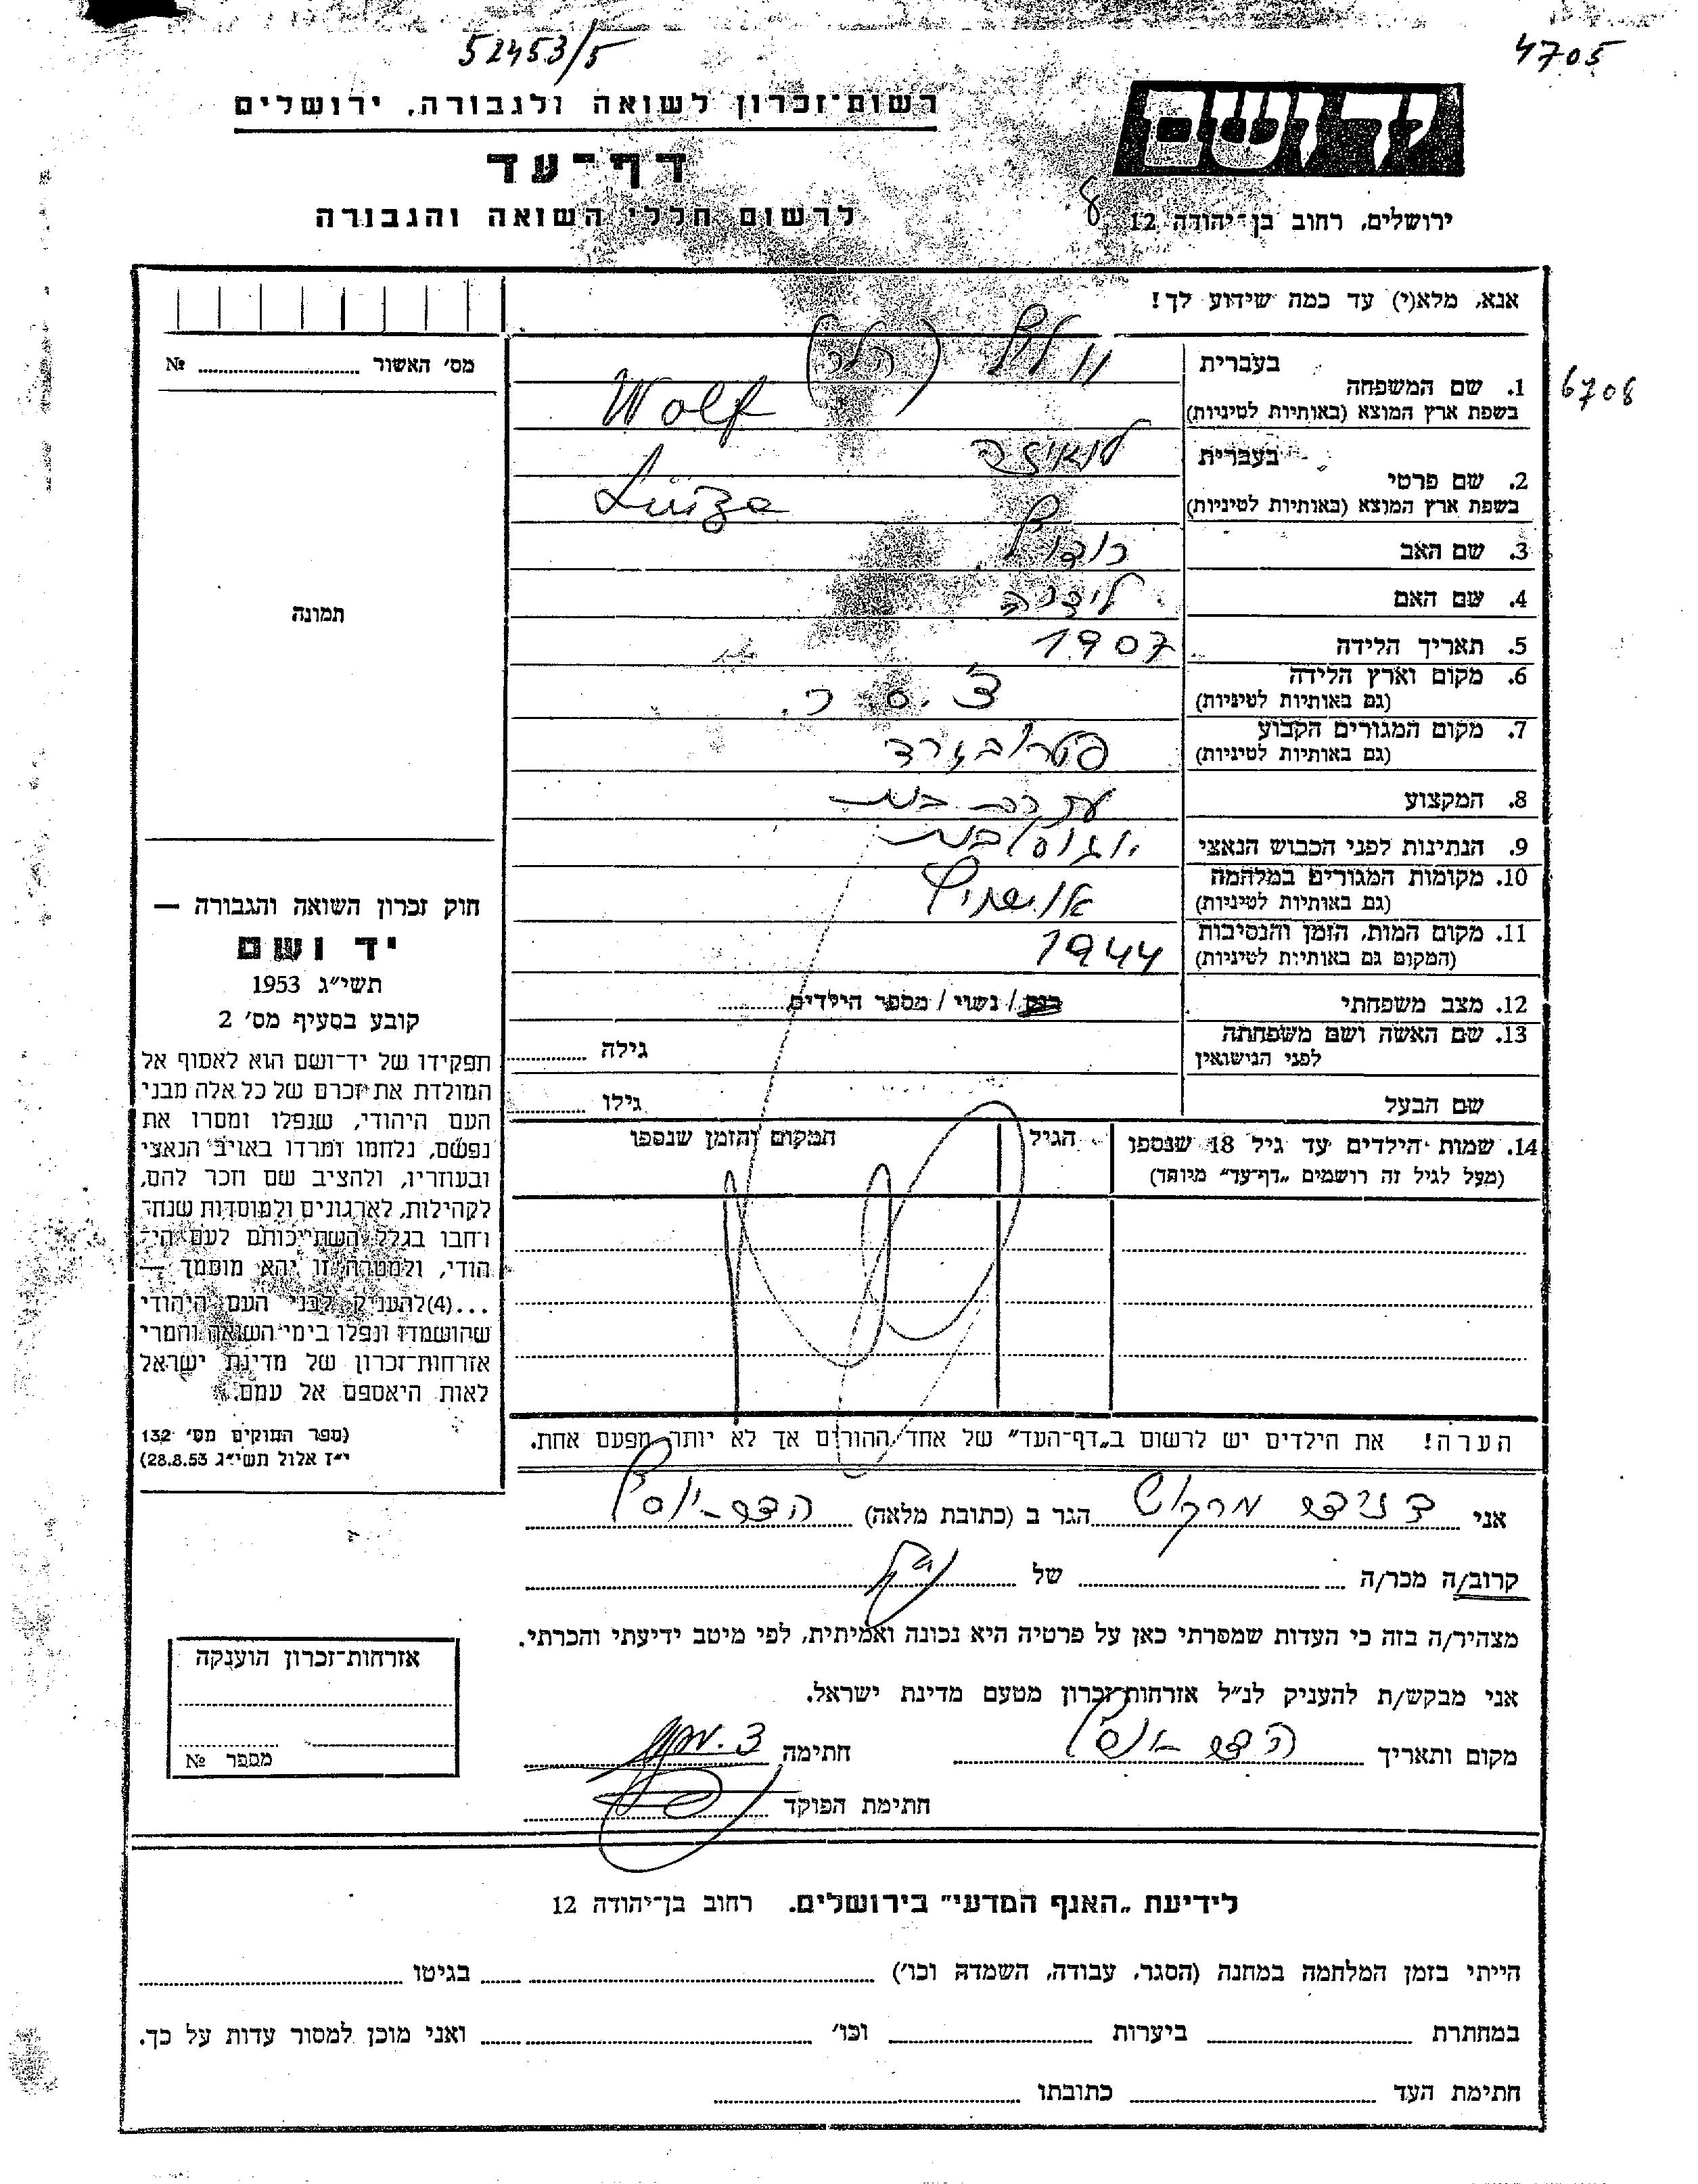 52453/5
4705
רשות־זכרון לשואה ולגבורה, ירושלים
ידושם
דף־עד
לרשום חללי השואה והגבורה
ירושלים, רחוב בן־יהודה 12
אנא, מלא(י) עד כמה שידוע לך!
מס׳ האשור № 
6708
בעברית
1. שם המשפחה
בשפת ארץ המוצא (באותיות לטיניות)
וולף (הלר)
Wolf
בעברית
2. שם פרטי
בשפת ארץ המוצא (באותיות לטיניות)
לואיזה
Luiza
3. שם האב
רודולף
4. שם האם
5. תאריך הלידה 1907
6. מקום וארץ הלידה
(גם באותיות לטיניות)
צ׳.ס.ר.
7. מקום המגורים הקבוע
(גם באותיות לטיניות)
פטרובגרד
8. המקצוע
עקרת בית
9. הנתינות לפני הכבוש הנאצי
יוגוסלבית
10. מקומות המגורים במלחמה
(גם באותיות לטיניות)
אושויץ
11. מקום המות, הזמן והנסיבות
(המקום גם באותיות לטיניות)
1944
12. מצב משפחתי רוק / נשוי / מספר הילדים
13. שם האשה ושם משפחתה
לפני הנישואין
גילה
שם הבעל גילו
14. שמות הילדים עד גיל 18 שנספו
(מעל לגיל זה רושמים „דף־עד״ מיוחד)
הגיל
המקום והזמן שנספו
הערה! את הילדים יש לרשום ב„דף־העד״ של אחד ההורים אך לא יותר מפעם אחת.
תמונה
חוק זכרון השואה והגבורה —
יד ושם
תשי״ג 1953
קובע בסעיף מס׳ 2
תפקידו של יד־ושם הוא לאסוף אל
המולדת את זכרם של כל אלה מבני
העם היהודי, שנפלו ומסרו את
נפשם, נלחמו ומרדו באויב הנאצי
ובעוזריו, ולהציב שם וזכר להם,
לקהילות, לארגונים ולמוסדות שנח־
רבו בגלל השתייכותם לעם הי־
הודי, ולמטרה זו יהא מוסמך —
...(4)להעניק לבני העם היהודי
שהושמדו ונפלו בימי השואה והמרי
אזרחות־זכרון של מדינת ישראל
לאות היאספם אל עמם.
(ספר החוקים מס׳ 132
י״ז אלול תשי״ג 28.8.53)
אני מרקוש הגר ב (כתובת מלאה)
קרוב/ה מכר/ה של
מצהיר/ה בזה כי העדות שמסרתי כאן על פרטיה היא נכונה ואמיתית, לפי מיטב ידיעתי והכרתי.
אני מבקש/ת להעניק לנ״ל אזרחות־זכרון מטעם מדינת ישראל.
מקום ותאריך חתימה
חתימת הפוקד
אזרחות־זכרון הוענקה
מספר №
לידיעת „האנף המדעי״ בירושלים. רחוב בן־יהודה 12
הייתי בזמן המלחמה במחנה (הסגר, עבודה, השמדה וכו׳) בגיטו
במחתרת ביערות וכו׳ ואני מוכן למסור עדות על כך.
חתימת העד כתובתו